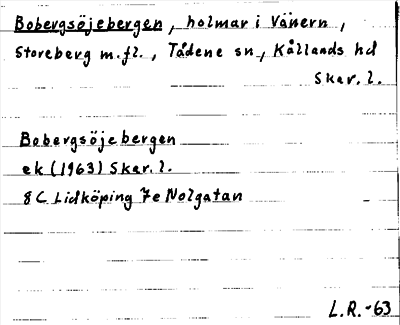 Bobergsöjebergen, holmar i Vänern,
Storeberg m.fl., Tådene sn, Kållands hd
Skar. l.
Bobergsöjebergen
ek (1963) Skar. l.
8C Lidköping 7e Nolgatan
L.R.-63